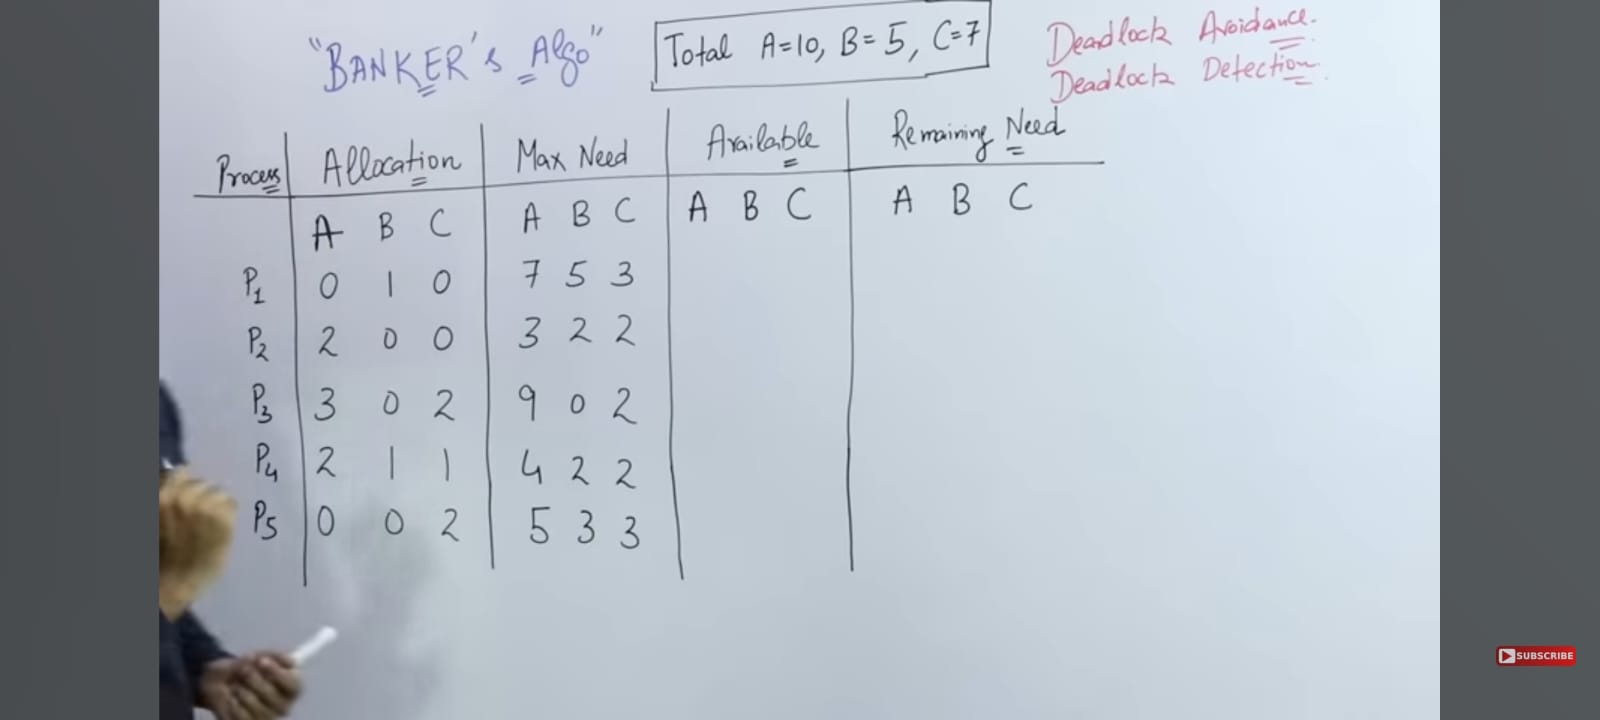 "BANKER's Algo"
Total A=10, B=5, C=7
Deadlock Avoidance.
Deadlock Detection.
Process Allocation Max Need Available Remaining Need
A B C A B C A B C A B C
P1 0 1 0 7 5 3
P2 2 0 0 3 2 2
P3 3 0 2 9 0 2
P4 2 1 1 4 2 2
P5 0 0 2 5 3 3
SUBSCRIBE